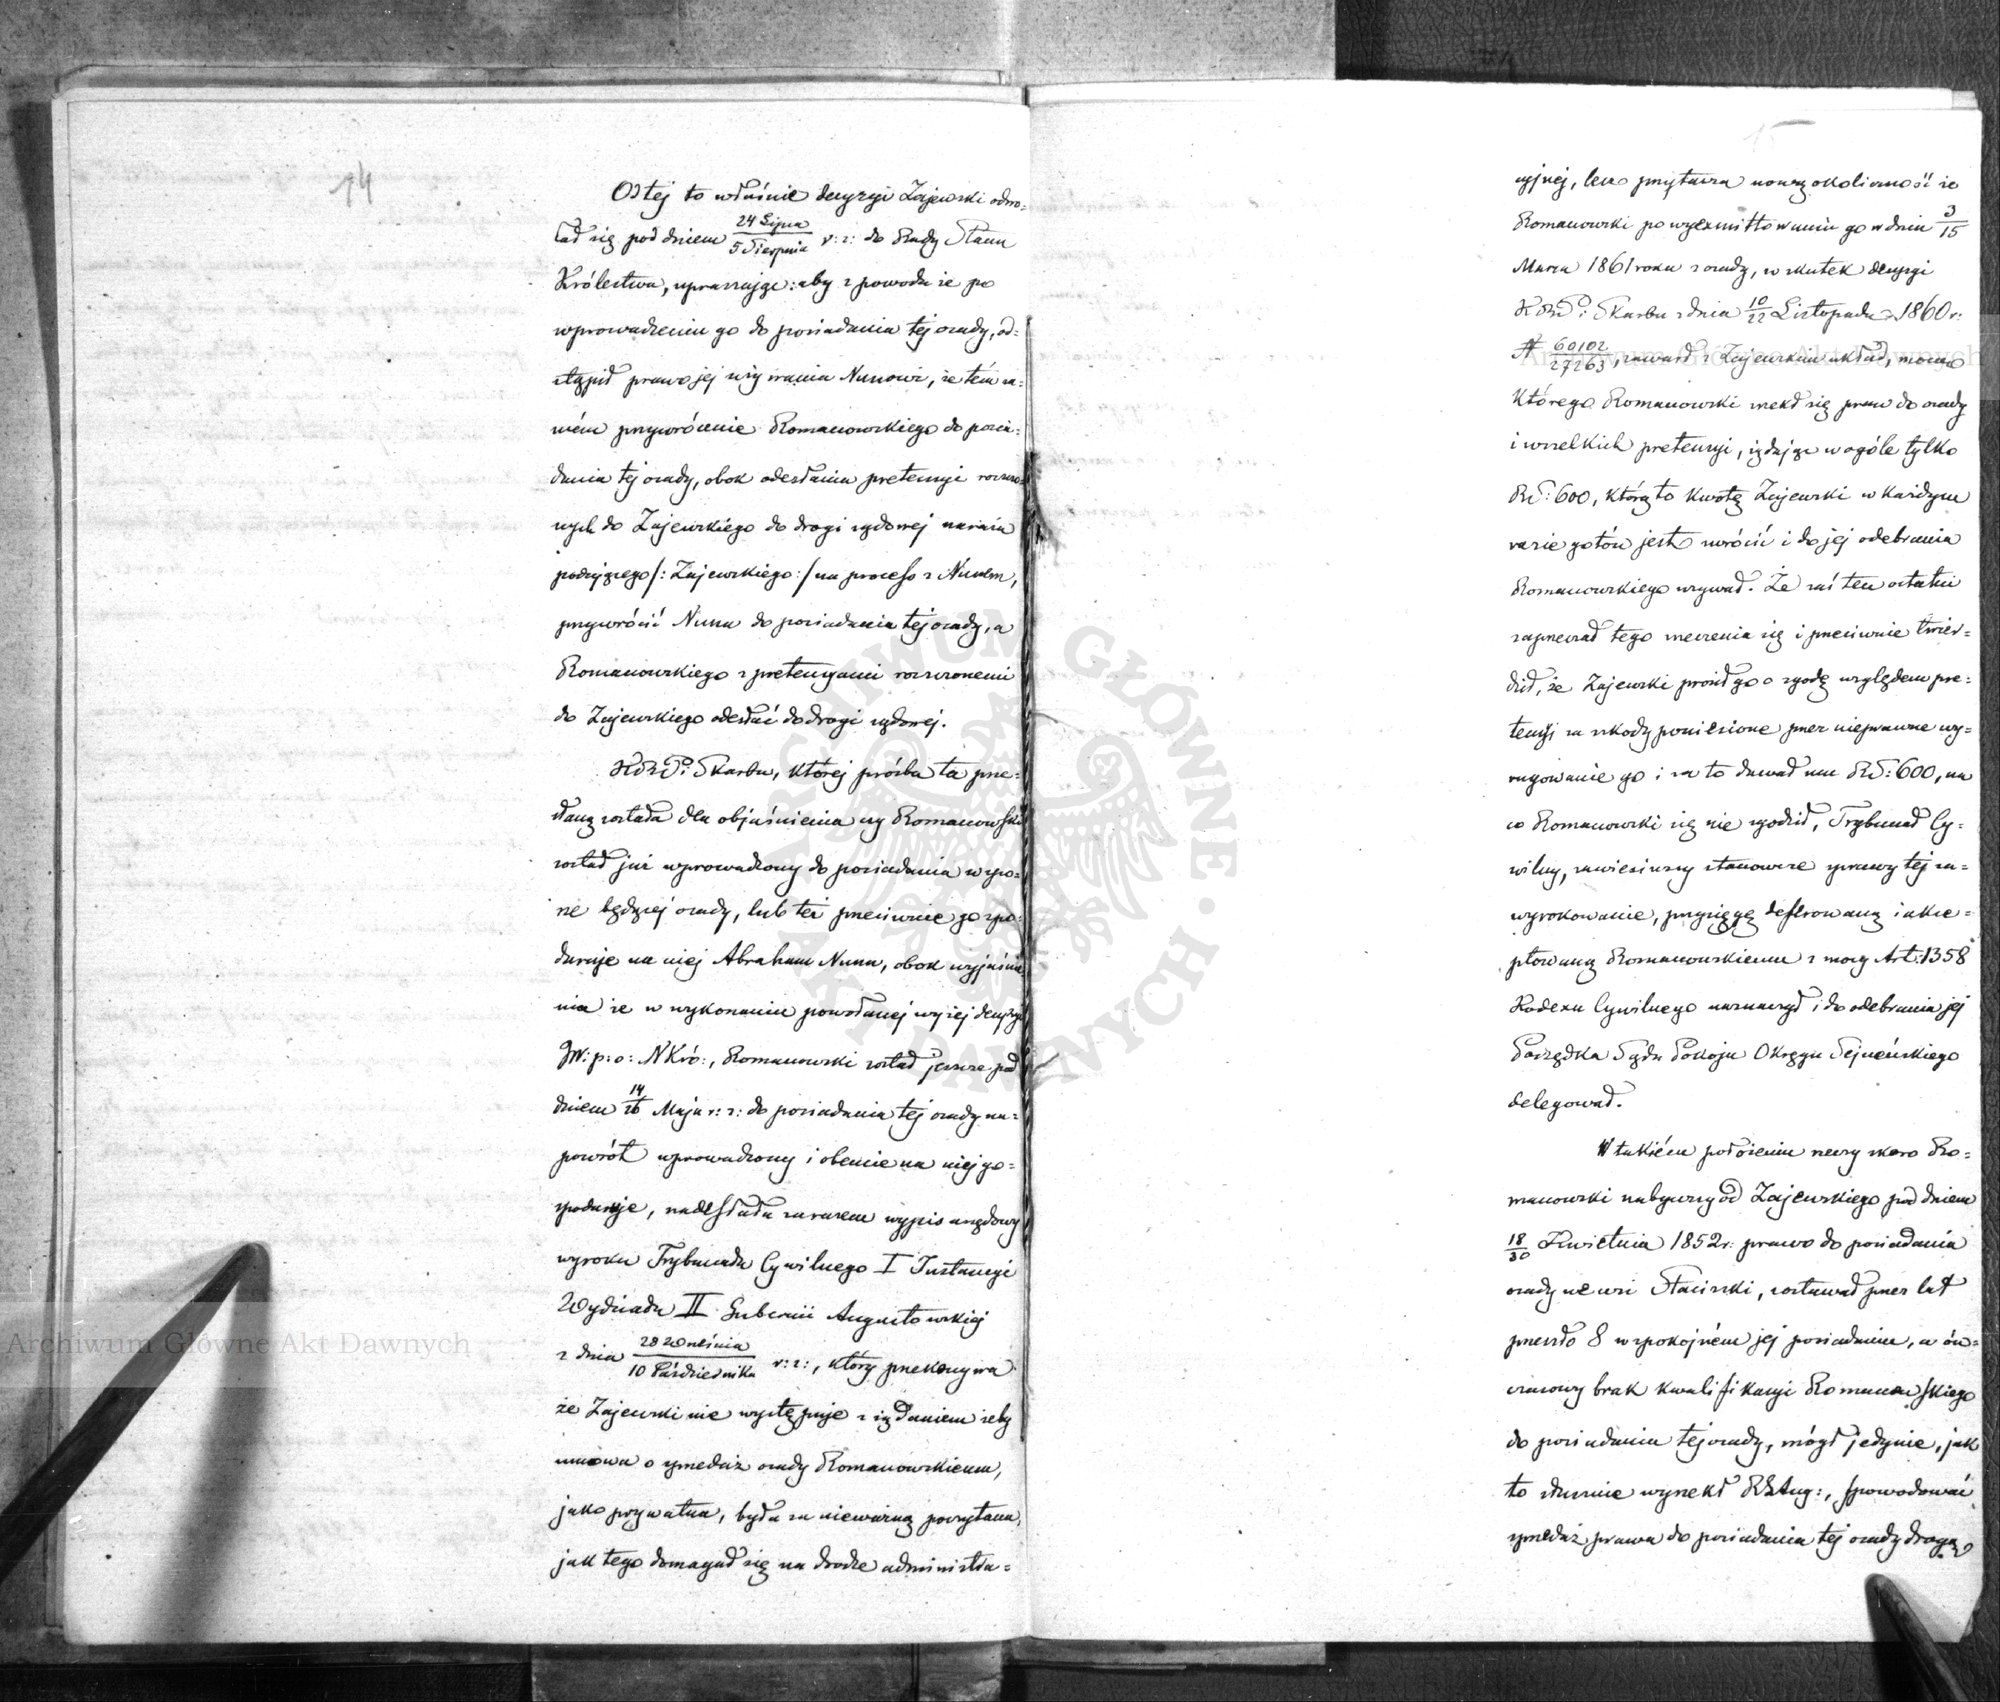 14
Od tej to właśnie decyzyi Zajewski odwo-
łał się pod dniem 24 Lipca / 5 Sierpnia r: z: do Rady Stanu
Królestwa, upraszając: aby z powodu że po
wprowadzeniu go do posiadania tej osady, od-
stąpił prawo jej używania Nunowi, że tém sa-
mém przywrócenie Romanowskiego do posia-
dania tej osady, obok odesłania pretensyi roszczo-
nych do Zajewskiego do drogi sądowej naraża
podającego /: Zajewskiego :/ na proces z Nunem,
przywrócić Nuna do posiadania tej osady, a
Romanowskiego z pretensyami roszczonemi
do Zajewskiego odesłać do drogi sądowej.
Skarbu, której prośba ta prze-
słaną została dla objaśnienia czy Romanowski
został już wprowadzony do posiadania w spo-
rze będącej osady, lub też przeciwnie gospo-
daruje na niej Abraham Nunn, obok wyjaśnie-
nia że w wykonaniu powołanej wyżej decyzyi
JW: p: o: NKró:, Romanowski został jeszcze pod
dniem 14/26 Maja r: z: do posiadania tej osady na-
powrót wprowadzony i obecnie na niej go-
spodaruje, nadesłała zarazem wypis urzędowy
wyroku Trybunału Cywilnego I Instancyi
Wydziału II Gubernii Augustowskiej
z dnia 28 Września / 10 Października r: z:, który przekonywa
że Zajewski nie występuje z żądaniem żeby
umowa o sprzedaż osady Romanowskiemu,
jako prywatna, była za nieważną poczytana,
jak tego domagał się na drodze administra-
15
cyjnej, lecz przytacza nową okoliczność że
Romanowski po wyexmittowaniu go w dniu 3/15
Marca 1861 roku z osady, w skutek decyzyi
Skarbu z dnia 10/22 Listopada 1860 r:
N 60102/27263, zawarł z Zajewskim układ, mocą
którego Romanowski zrzekł się praw do osady
i wszelkich pretensyi, żądając w ogóle tylko
Rs: 600, którą to kwotę Zajewski w każdym
razie gotów jest zwrócić i do jej odebrania
Romanowskiego wzywał. Że zaś ten ostatni
zaprzeczał tego zrzeczenia się i przeciwnie twier-
dził, że Zajewski prosił go o zgodę względem pre-
tensyi za szkody poniesione przez nieprawne wy-
rugowanie go i za to dawał mu Rs: 600, na
co Romanowski się nie zgodził, Trybunał Cy-
wilny, zawiesiwszy stanowcze sprawy tej za-
wyrokowanie, przysięgę deferowaną i akce-
ptowaną Romanowskiemu z mocy Art: 1358
Kodexu Cywilnego naznaczył i do odebrania jej
Podsędka Sądu Pokoju Okręgu Sejneńskiego
delegował.
W takiém położeniu rzeczy skoro Ro-
manowski nabywszy od Zajewskiego pod dniem
18/30 Kwietnia 1852 r: prawo do posiadania
osady we wsi Staciszki, zostawał przez lat
przeszło 8 w spokojném jej posiadaniu, a ów-
czasowy brak kwalifikacyi Romanowskiego
do posiadania tej osady, mógł jedynie, jak
to słusznie wyrzekł RGAug:, spowodować
sprzedaż prawa do posiadania tej osady drogą
Archiwum Główne Akt Dawnych
Archiwum Główne Akt Dawnych
ARCHIWUM GŁÓWNE AKT DAWNYCH